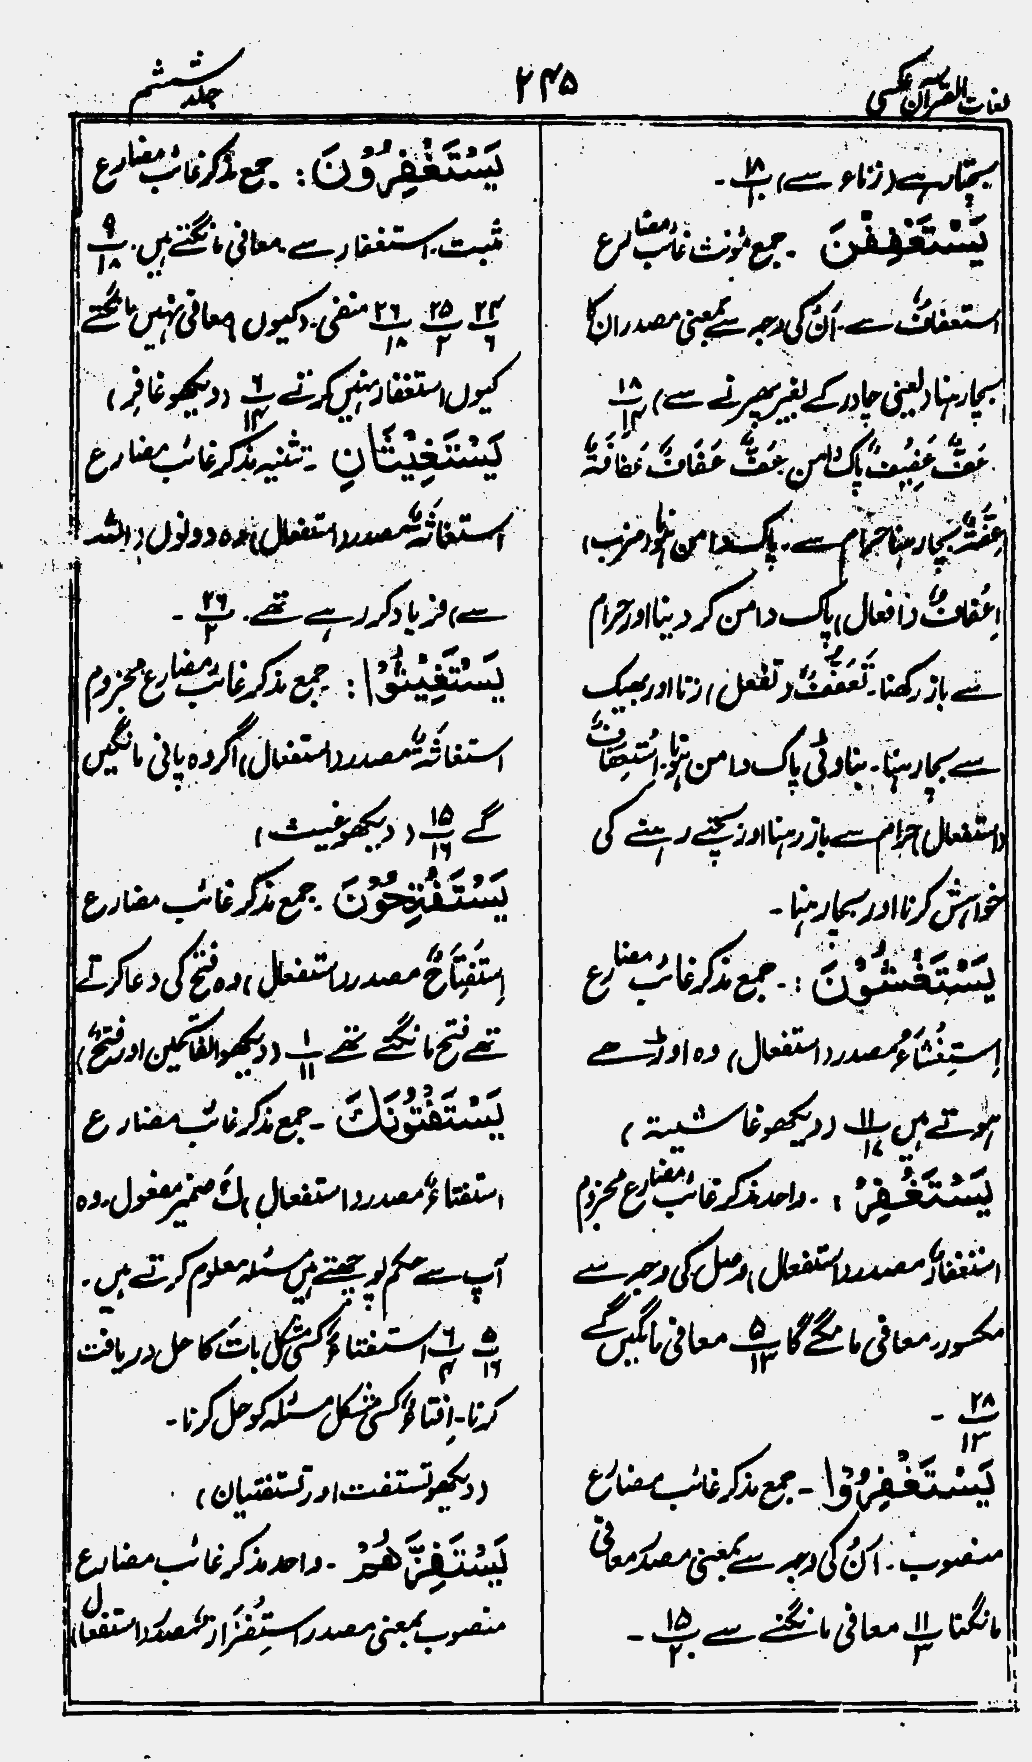 لغات القرآن عکسی
۲۴۵
جلد ششم
بچتا رہے (زناء سے) ۱۸/۱۰ ۔
یَسْتَعْفِفْنَ ۔ جمع مؤنث غائب مضارع
استعفافٌ سے ۔ اَنْ کی وجہ سے بمعنی مصدر ان کا
بچا رہنا (یعنی چادر کے بغیر پھرنے سے) ۱۸/۱۴
عَفٌّ عَفِیْفٌ پاک دامن عَفٌّ عَفَافٌ عَفَافَةٌ
عِفَّةٌ بچا رہنا حرام سے ۔ پاک دامن ہونا (ضرب)
اِعْفَافٌ (افعال) پاک دامن کر دینا اور حرام
سے باز رکھنا ۔ تَعَفُّفٌ (تفعل) زنا اور بھیک
سے بچا رہنا ۔ بناوٹی پاک دامن ہونا ۔ اِسْتِعْفَافٌ
(استفعال) حرام سے باز رہنا اور بچتے رہنے کی
خواہش کرنا اور بچا رہنا ۔
یَسْتَغْشُوْنَ : ۔ جمع مذکر غائب مضارع
اِسْتِغْشَاءٌ مصدر (استفعال) وہ اوڑھے
ہوتے ہیں ۱۱/۱۷ (دیکھو غاشیتہ)
یَسْتَغْفِرْ : ۔ واحد مذکر غائب مضارع مجزوم
استغفارٌ مصدر (استفعال) وصل کی وجہ سے
مکسور ۔ معافی مانگے گا ۵/۱۳ معافی مانگیں گے
۲۸/۱۳ ۔
یَسْتَغْفِرُوْا ۔ جمع مذکر غائب مضارع
منصوب ۔ اَنْ کی وجہ سے بمعنی مصدر معافی
مانگنا ۱۱/۳ معافی مانگنے سے ۱۵/۲۰ ۔
یَسْتَغْفِرُوْنَ : ۔ جمع مذکر غائب مضارع
مثبت ۔ استغفار سے ۔ معافی مانگتے ہیں ۔ ۹/۱۸
۲۴/۶ ۲۵/۲ ۲۶/۱۸ منفی ۔ (کیوں) معافی نہیں مانگتے
کیوں استغفار نہیں کرتے ۶/۱۴ (دیکھو غافِر)
یَسْتَغِیْثَانِ ۔ تثنیہ مذکر غائب مضارع
استغاثةٌ مصدر (استفعال) وہ دونوں (اللہ
سے) فریاد کر رہے تھے ۔ ۲۶/۲ ۔
یَسْتَغِیْثُوْا : جمع مذکر غائب مضارع مجزوم
استغاثَةٌ مصدر (استفعال) اگر وہ پانی مانگیں
گے ۱۵/۱۶ (دیکھو غیث)
یَسْتَفْتِحُوْنَ ۔ جمع مذکر غائب مضارع
اِسْتِفْتَاحٌ مصدر (استفعال) وہ فتح کی دعا کرتے
تھے فتح مانگتے تھے ۱/۱۱ (دیکھو الفاتحین اور فتحٌ)
یَسْتَفْتُوْنَكَ ۔ جمع مذکر غائب مضارع
استفتاءٌ مصدر (استفعال) كَ ضمیر مفعول ۔ وہ
آپ سے حکم پوچھتے ہیں مسئلہ معلوم کرتے ہیں ۔
۵/۱۶ ۶/۴ استفتاءٌ کسی مشکل بات کا حل دریافت
کرنا ۔ اِفتاءٌ کسی مشکل مسئلہ کو حل کرنا ۔
(دیکھو تستفت اور تستفتیان)
یَسْتَفِزَّهُمْ ۔ واحد مذکر غائب مضارع
منصوب بمعنی مصدر استِفْزَازٌ مصدر (استفعال)